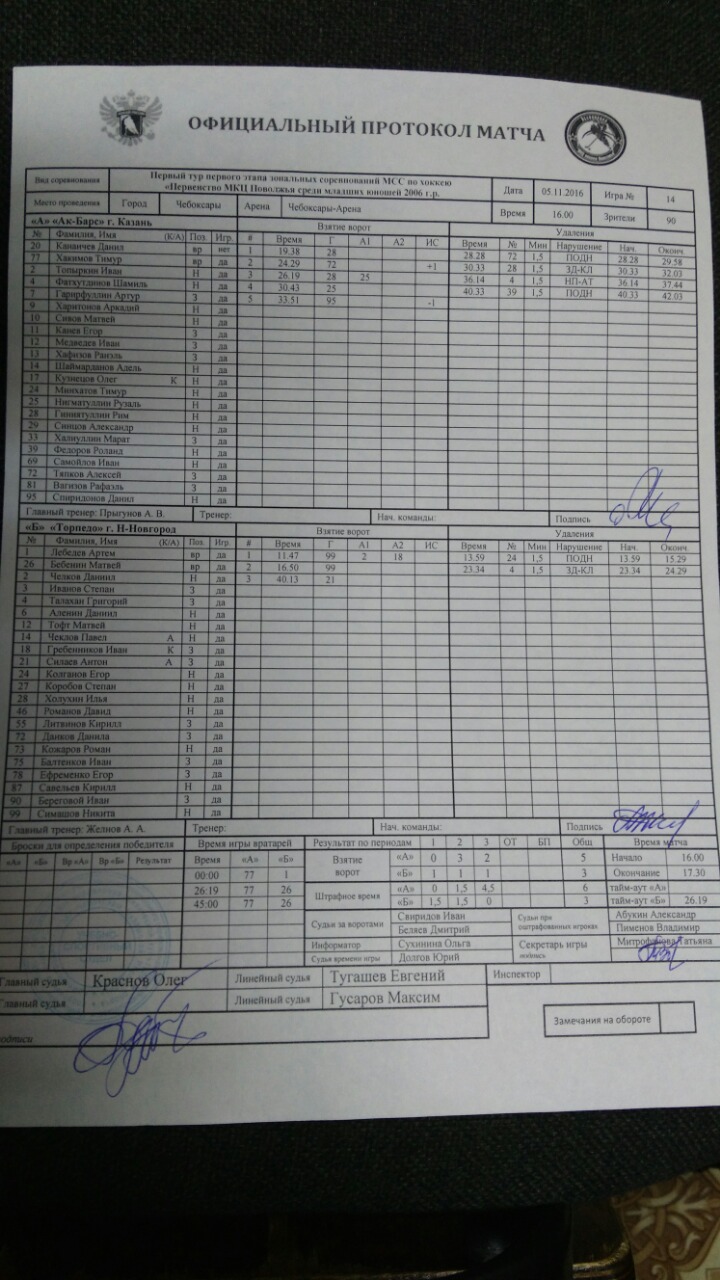 ОФИЦИАЛЬНЫЙ ПРОТОКОЛ МАТЧА
Вид соревнования Первый тур первого этапа зональных соревнований МСС по хоккею «Первенство МКЦ Поволжья среди младших юношей 2006 г.р. Дата 05.11.2016 Игра № 14
Место проведения Город Чебоксары Арена Чебоксары-Арена Время 16.00 Зрители 90
«А» «Ак-Барс» г. Казань Взятие ворот Удаления
№ Фамилия, Имя (К/А) Поз. Игр. # Время Г А1 А2 ИС Время № Мин Нарушение Нач. Оконч.
20 Каначев Данил вр нет 1 19.38 28 28.28 72 1,5 ПОДН 28.28 29.58
77 Хакимов Тимур вр да 2 24.29 72 +1 30.33 28 1,5 ЗД-КЛ 30.33 32.03
2 Топыркин Иван Н да 3 26.19 28 25 36.14 4 1,5 НП-АТ 36.14 37.44
4 Фатхутдинов Шамиль Н да 4 30.43 25 40.33 39 1,5 ПОДН 40.33 42.03
7 Гарифуллин Артур З да 5 33.51 95 -1
9 Харитонов Аркадий Н да
10 Сивов Матвей Н да
11 Канев Егор З да
12 Медведев Иван З да
13 Хафизов Раиэль З да
14 Шаймарданов Адель Н да
17 Кузнецов Олег К Н да
24 Минхатов Тимур Н да
25 Нигматуллин Рузаль Н да
28 Гиниятуллин Рим Н да
29 Синцов Александр Н да
33 Халиуллин Марат З да
39 Федоров Роланд Н да
69 Самойлов Иван Н да
72 Тяпков Алексей З да
81 Вагизов Рафаэль З да
95 Спиридонов Данил Н да
Главный тренер: Прыгунов А. В. Тренер: Нач. команды: Подпись
«Б» «Торпедо» г. Н-Новгород Взятие ворот Удаления
№ Фамилия, Имя (К/А) Поз. Игр. # Время Г А1 А2 ИС Время № Мин Нарушение Нач. Оконч.
1 Лебедев Артем вр да 1 11.47 99 2 18 13.59 24 1,5 ПОДН 13.59 15.29
26 Бебенин Матвей вр да 2 16.50 99 23.34 4 1,5 ЗД-КЛ 23.34 24.29
2 Челков Даниил Н да 3 40.13 21
3 Иванов Степан З да
4 Талахан Григорий З да
6 Аленин Даниил Н да
12 Тофт Матвей Н да
14 Чеклов Павел А Н да
18 Гребенников Иван К З да
21 Силаев Антон А З да
24 Колганов Егор Н да
27 Коробов Степан Н да
28 Холухин Илья Н да
46 Романов Давид Н да
55 Литвинов Кирилл З да
72 Данков Данила З да
73 Кожаров Роман Н да
75 Балтенков Иван З да
78 Ефременко Егор З да
87 Савельев Кирилл Н да
90 Береговой Иван З да
99 Симашов Никита Н да
Главный тренер: Желнов А. А. Тренер: Нач. команды: Подпись
Броски для определения победителя Время игры вратарей Результат по периодам 1 2 3 ОТ БП Общ Время матча
«А» «Б» Вр «А» Вр «Б» Результат Время «А» «Б» Взятие ворот «А» 0 3 2 5 Начало 16.00
00:00 77 1 «Б» 1 1 1 3 Окончание 17.30
26:19 77 26 Штрафное время «А» 0 1,5 4,5 6 тайм-аут «А»
45:00 77 26 «Б» 1,5 1,5 0 3 тайм-аут «Б» 26.19
Судьи за воротами Свиридов Иван Судьи при оштрафованных игроках Абукин Александр
Беляев Дмитрий Пименов Владимир
Информатор Сухинина Ольга Секретарь игры подпись Митрофанова Татьяна
Судья времени игры Долгов Юрий
Главный судья Краснов Олег Линейный судья Тугашев Евгений Инспектор
Главный судья Линейный судья Гусаров Максим
одписи Замечания на обороте